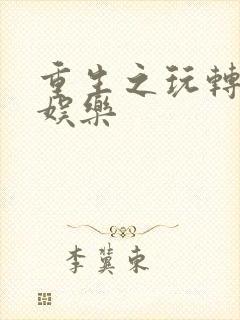 重生之玩轉
娛樂
李冀東